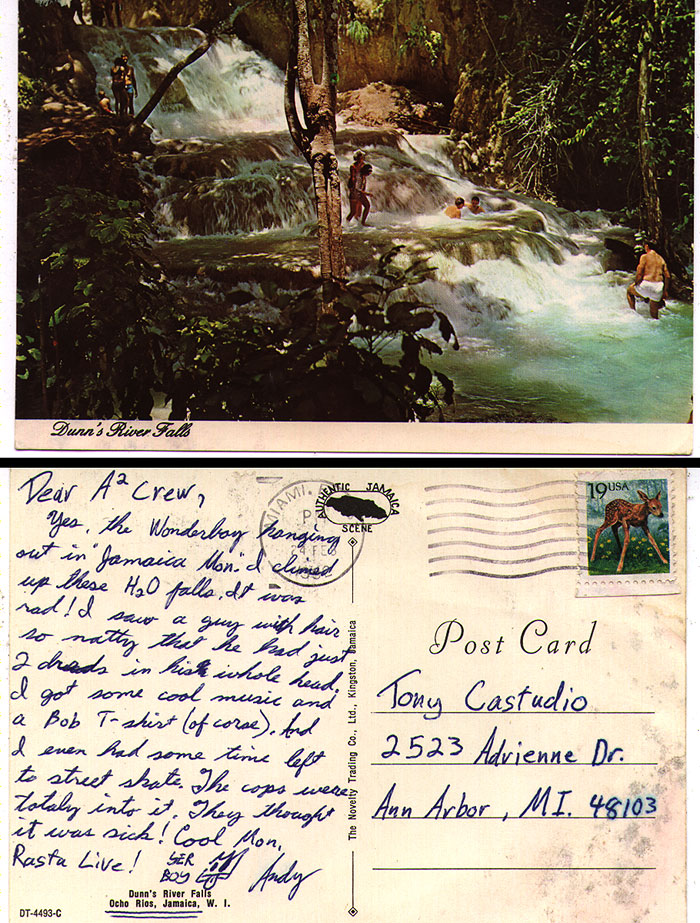 Dunn's River Falls
Dear A² Crew,
Yes, the Wonderboy hanging
out in "Jamaica Mon." I climed
up these H₂O falls. It was
rad! I saw a guy with hair
so natty that he had just
2 dreads in his whole head.
I got some cool music and
a Bob T-shirt (of corse). And
I even had some time left
to street skate. The cops were
totaly into it. They thought
it was sick! Cool Mon.
Rasta Live!
YER
BOY
Andy
Dunn's River Falls
Ocho Rios, Jamaica, W. I.
DT-4493-C
MIAMI,
24 FEB
1992
AUTHENTIC JAMAICA
SCENE
The Novelty Trading Co., Ltd., Kingston, Jamaica
19 USA
Post Card
Tony Castudio
2523 Adrienne Dr.
Ann Arbor, MI. 48103